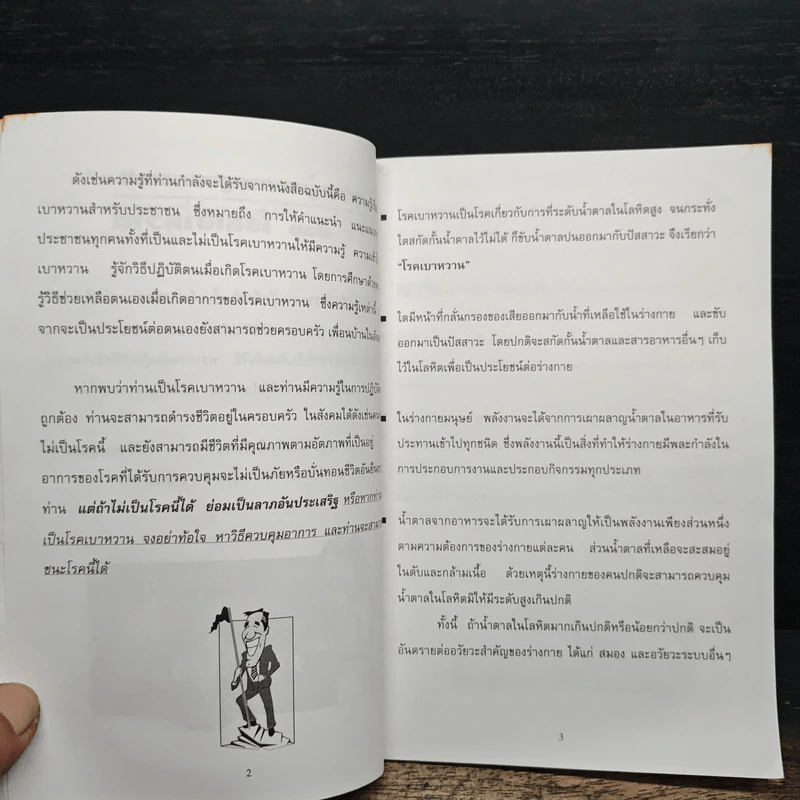 ดังเช่นความรู้ที่ท่านกำลังจะได้รับจากหนังสือฉบับนี้คือ
เบาหวานสำหรับประชาชน ซึ่งหมายถึง การให้คำแนะนำ
ประชาชนทุกคนทั้งที่เป็นและไม่เป็นโรคเบาหวานให้มีความรู้
เบาหวาน รู้จักวิธีปฏิบัติตนเมื่อเกิดโรคเบาหวาน โดยการศึกษา
รู้วิธีช่วยเหลือตนเองเมื่อเกิดอาการของโรคเบาหวาน ซึ่งความรู้เหล่านี้
จากจะเป็นประโยชน์ต่อตนเองยังสามารถช่วยครอบครัว เพื่อนบ้าน
หากพบว่าท่านเป็นโรคเบาหวาน และท่านมีความรู้ในการ
ถูกต้อง ท่านจะสามารถดำรงชีวิตอยู่ในครอบครัว ในสังคมได้ดังเช่น
ไม่เป็นโรคนี้ และยังสามารถมีชีวิตที่มีคุณภาพตามอัตภาพที่เป็นอยู่
อาการของโรคที่ได้รับการควบคุมจะไม่เป็นภัยหรือบั่นทอนชีวิต
ท่าน แต่ถ้าไม่เป็นโรคนี้ได้ ย่อมเป็นลาภอันประเสริฐ
เป็นโรคเบาหวาน จงอย่าท้อใจ หาวิธีควบคุมอาการ และท่านจะ
ชนะโรคนี้ได้
2
โรคเบาหวานเป็นโรคเกี่ยวกับการที่ระดับน้ำตาลในโลหิตสูง จนกระทั่ง
ไตสกัดกั้นน้ำตาลไว้ไม่ได้ ก็ขับน้ำตาลปนออกมากับปัสสาวะ จึงเรียกว่า
“โรคเบาหวาน”
ไตมีหน้าที่กลั่นกรองของเสียออกมากับน้ำที่เหลือใช้ในร่างกาย และขับ
ออกมาเป็นปัสสาวะ โดยปกติจะสกัดกั้นน้ำตาลและสารอาหารอื่นๆ เก็บ
ไว้ในโลหิตเพื่อเป็นประโยชน์ต่อร่างกาย
ในร่างกายมนุษย์ พลังงานจะได้จากการเผาผลาญน้ำตาลในอาหารที่รับ
ประทานเข้าไปทุกชนิด ซึ่งพลังงานนี้เป็นสิ่งที่ทำให้ร่างกายมีพละกำลังใน
การประกอบการงานและประกอบกิจกรรมทุกประเภท
น้ำตาลจากอาหารจะได้รับการเผาผลาญให้เป็นพลังงานเพียงส่วนหนึ่ง
ตามความต้องการของร่างกายแต่ละคน ส่วนน้ำตาลที่เหลือจะสะสมอยู่
ในตับและกล้ามเนื้อ ด้วยเหตุนี้ร่างกายของคนปกติจะสามารถควบคุม
น้ำตาลในโลหิตมิให้มีระดับสูงเกินปกติ
ทั้งนี้ ถ้าน้ำตาลในโลหิตมากเกินปกติหรือน้อยกว่าปกติ จะเป็น
อันตรายต่ออวัยวะสำคัญของร่างกาย ได้แก่ สมอง และอวัยวะระบบอื่นๆ
3